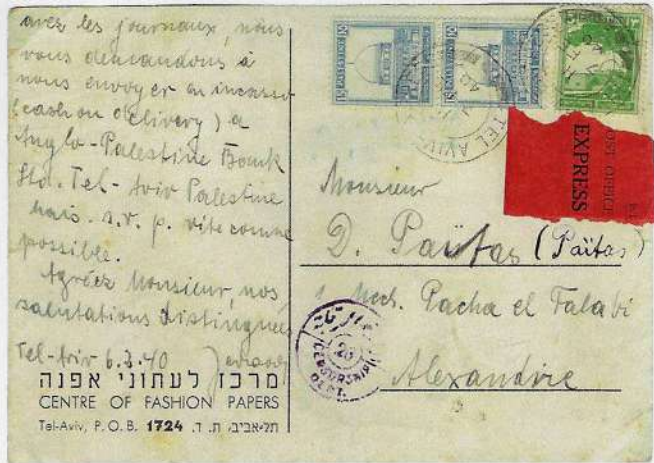 avez les journaux, nous
vous demandons à
nous envoyer en incasso
(cash on delivery) a
Anglo-Palestine Bank
Ltd. Tel-Aviv Palestine
mais s.v.p. vite comme
possible.
Agréez Monsieur, nos
salutations distinguées
Tel-Aviv 6.3.40
מרכז לעתוני אפנה
CENTRE OF FASHION PAPERS
Tel-Aviv, P.O.B. 1724 תל-אביב, ת. ד.
TEL AVIV
POST OFFICE
EXPRESS
Monsieur
D. Païtas (Païtas)
Pacha el Falabi
Alexandrie
CENSORSHIP
DEPT.